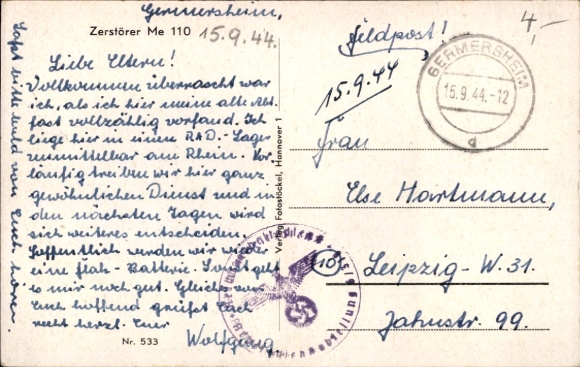 Germersheim,
Zerstörer Me 110 15.9.44.
Liebe Eltern!
Vollkommen überrascht war
ich, als ich hier meine alte Abt.
fast vollzählig vorfand. Ich
liege hier in einem RAD.-Lager
unmittelbar am Rhein. Vor-
läufig treiben wir hier ganz
gewöhnlichen Dienst und in
den nächsten Tagen wird
sich weiteres entscheiden.
Hoffentlich werden wir wieder
eine Flak-Batterie. Sonst geht
es mir noch gut. Gleiches von
Euch hoffend grüßt Euch
recht herzl. Euer
Wolfgang
Nr. 533
Laßt bitte bald von Euch hören.
Verlag Fotostöckel, Hannover 1
Feldpost!
15.9.44
4,-
GERMERSHEIM
15.9.44.-12
d
Frau
Else Hartmann,
Leipzig-W.31.
Jahnstr. 99.